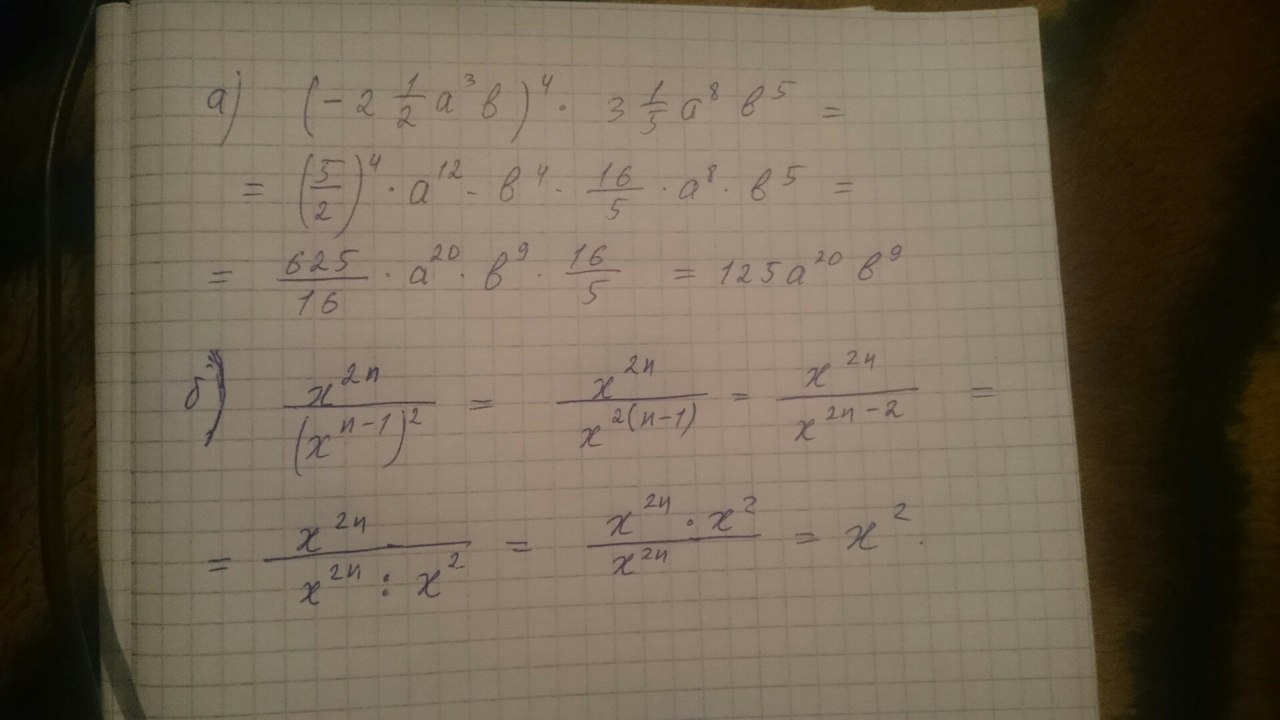 а) (-2 1/2 a³в)⁴ · 3 1/5 a⁸ в⁵ =
= (5/2)⁴ · a¹² · в⁴ · 16/5 · a⁸ · в⁵ =
= 625/16 · a²⁰ · в⁹ · 16/5 = 125a²⁰ в⁹
б) x²ⁿ/(xⁿ⁻¹)² = x²ⁿ/x²⁽ⁿ⁻¹⁾ = x²ⁿ/x²ⁿ⁻² =
= x²ⁿ/(x²ⁿ : x²) = (x²ⁿ · x²)/x²ⁿ = x².